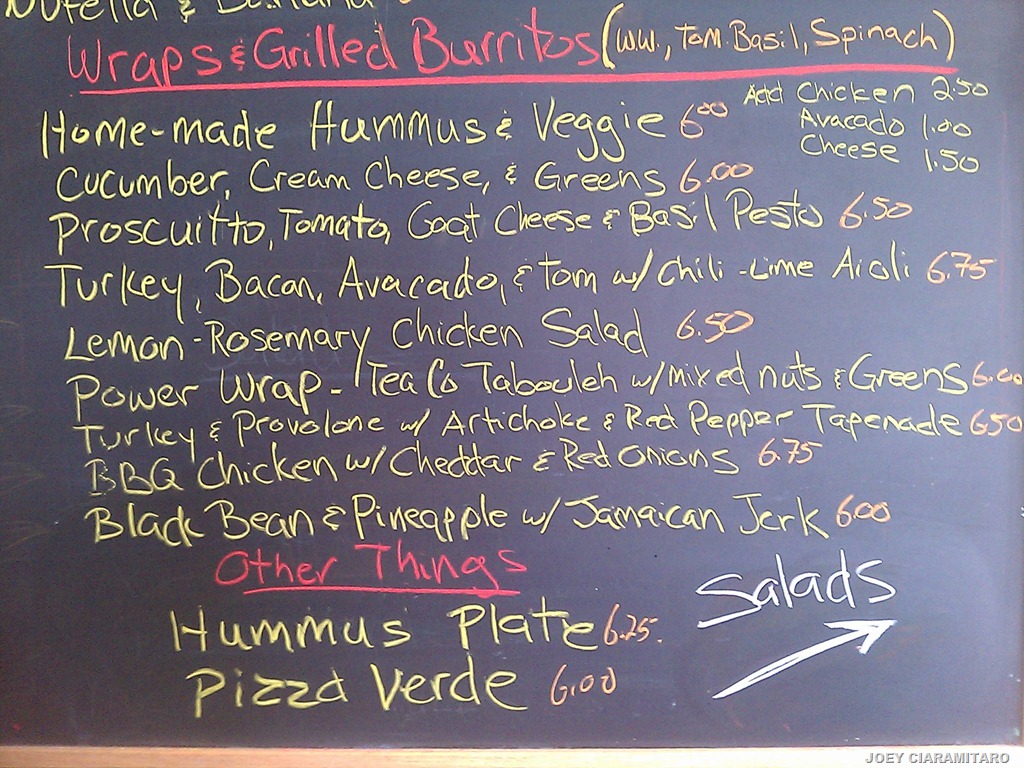 Nutella & Banana
Wraps & Grilled Burritos (WW., Tom. Basil, Spinach)
Add Chicken 2.50
Avacado 1.00
Cheese 1.50
Home-made Hummus & Veggie 6.00
Cucumber, Cream Cheese, & Greens 6.00
Proscuitto, Tomato, Goat Cheese & Basil Pesto 6.50
Turkey, Bacan, Avacado, & Tom w/ Chili-Lime Aioli 6.75
Lemon-Rosemary Chicken Salad 6.50
Power Wrap - Tea Co Tabouleh w/ Mixed nuts & Greens 6.00
Turkey & Provolone w/ Artichoke & Red Pepper Tapenade 6.50
BBQ Chicken w/ Cheddar & Red Onions 6.75
Black Bean & Pineapple w/ Jamaican Jerk 6.00
Other Things
Salads
Hummus Plate 6.25.
Pizza Verde 6.00
JOEY CIARAMITARO